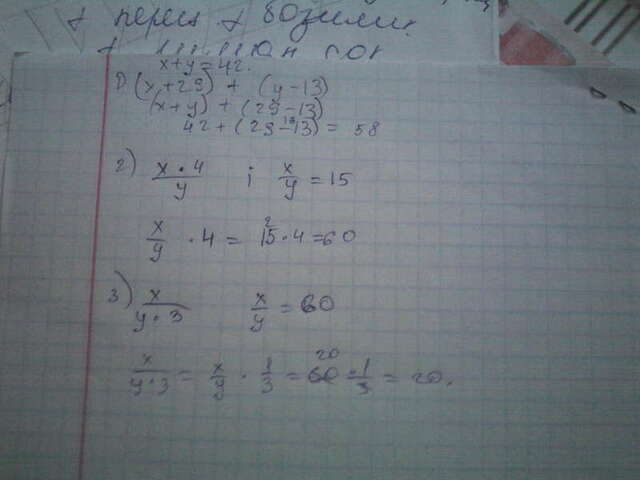 x+y=42.
1) (x+29) + (y-13)
(x+y) + (29-13)
42+(29-13) = 58
2) x·4/y і x/y = 15
x/y · 4 = 15·4=60
3) x/y·3 x/y = 60
x/y·3 = x/y · 1/3 = 60 · 1/3 = 20.